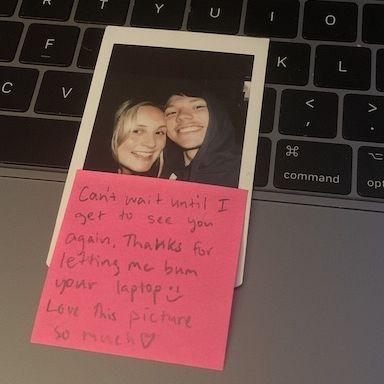 R T Y U I O
F K L
C V < , > .
⌘
command opt
Can't wait until I
get to see you
again. Thanks for
letting me bum
your laptop :)
Love this picture
so much ♡